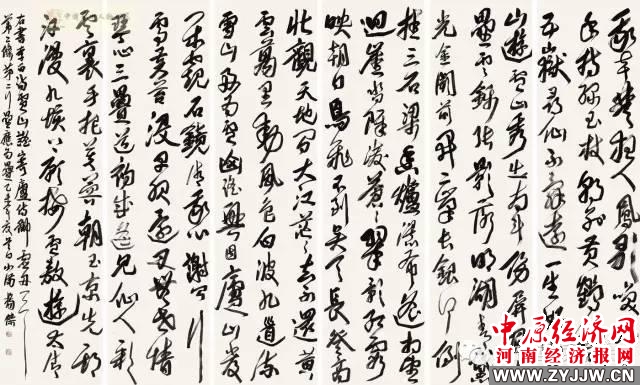 我本楚狂人鳳歌笑
手持緑玉杖朝别黄鶴
五嶽尋仙不辭遠一生好
山遊廬山秀出南斗傍屏風
疊雲錦張影落明湖青黛
光金闕前開二峯長銀河倒
挂三石梁香爐瀑布遥相望
迴崖沓障凌蒼蒼翠影紅霞
映朝日鳥飛不到吴天長登高
壯觀天地間大江茫茫去不還黄
雲萬里動風色白波九道流
雪山好為廬山謡興因廬山發
閑窺石鏡清我心謝公行
處蒼苔没早服還丹無世情
琴心三疊道初成遥見仙人彩
雲裏手把芙蓉朝玉京先期
汗漫九垓上願接盧敖遊太清
右書李白廬山謡寄盧侍御虚舟
中原经济网
河南经济报网
WWW.ZYJJW.CN